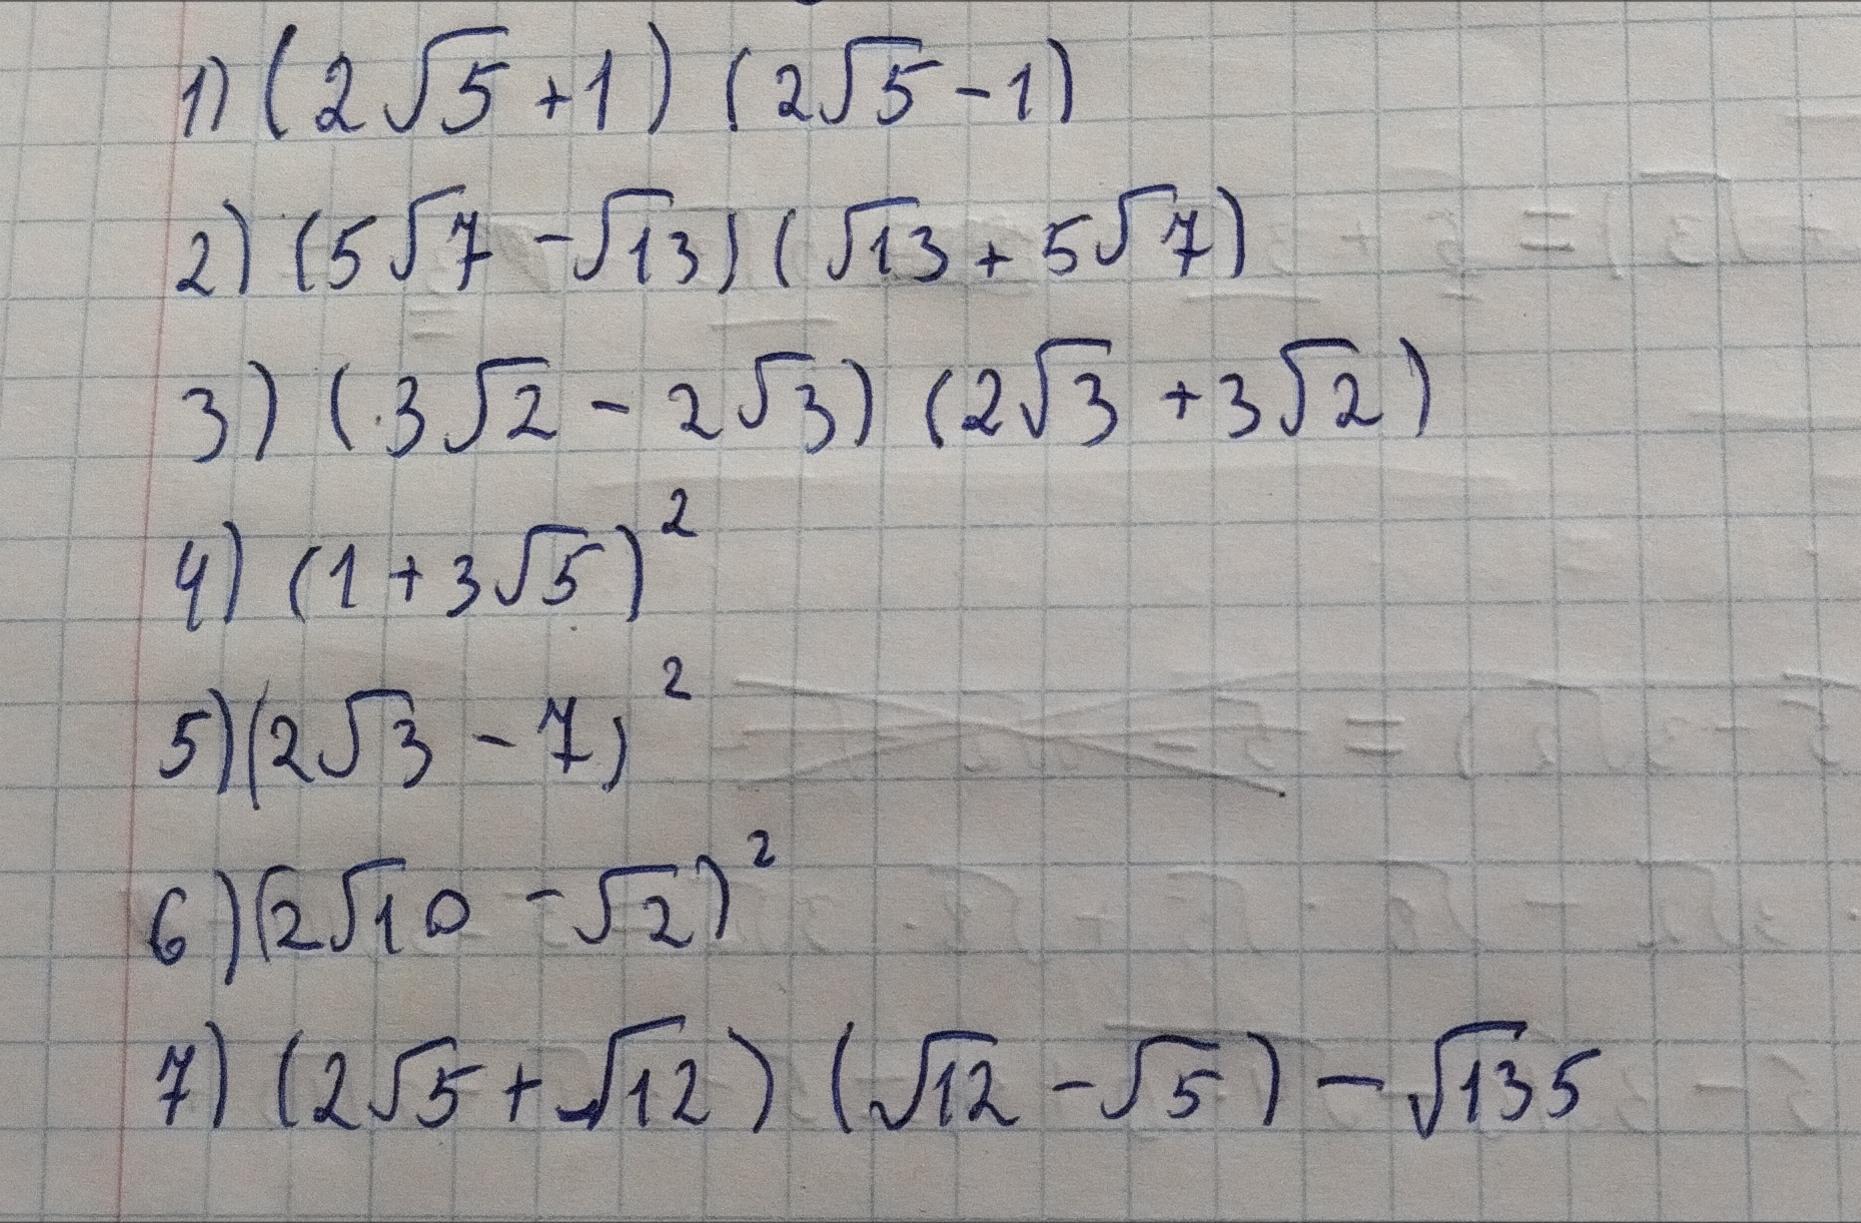 1) (2√5 + 1) (2√5 - 1)
2) (5√7 - √13) (√13 + 5√7)
3) (3√2 - 2√3) (2√3 + 3√2)
4) (1 + 3√5)²
5) (2√3 - 7)²
6) (2√10 - √2)²
7) (2√5 + √12) (√12 - √5) - √135